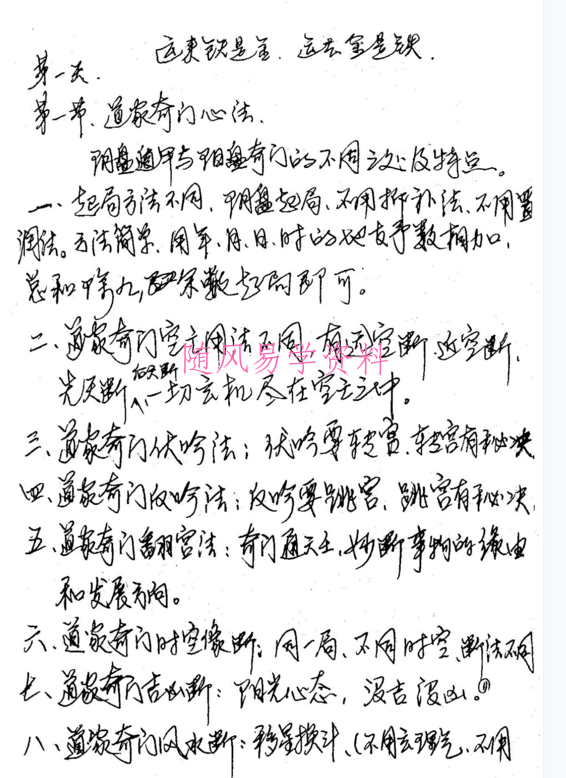 运来铁是金、运去金是铁.
第一天.
第一节、道家奇门心法.
阴盘遁甲与阳盘奇门的不同之处及特点。
一、起局方法不同、阴盘起局、不用拆补法、不用置
润法。方法简单、用年、月、日、时的地支序数相加,
总和除九,余数起局即可。
二、道家奇门空亡用法不同,有远空断 近空断,
先天断 后天断 一切玄机尽在空亡之中。
随风易学资料
三、道家奇门伏吟法; 伏吟要转宫、转宫有秘决
四、道家奇门反吟法; 反吟要跳宫、跳宫有秘决,
五、道家奇门翻宫法: 奇门通天王,妙断事物的缘由
和发展方向。
六、道家奇门时空像断: 同一局、不同时空、断法不同
七、道家奇门吉凶断: 阳光心态, 没吉没凶。
八、道家奇门风水断: 移星换斗、(不用玄理气、不用